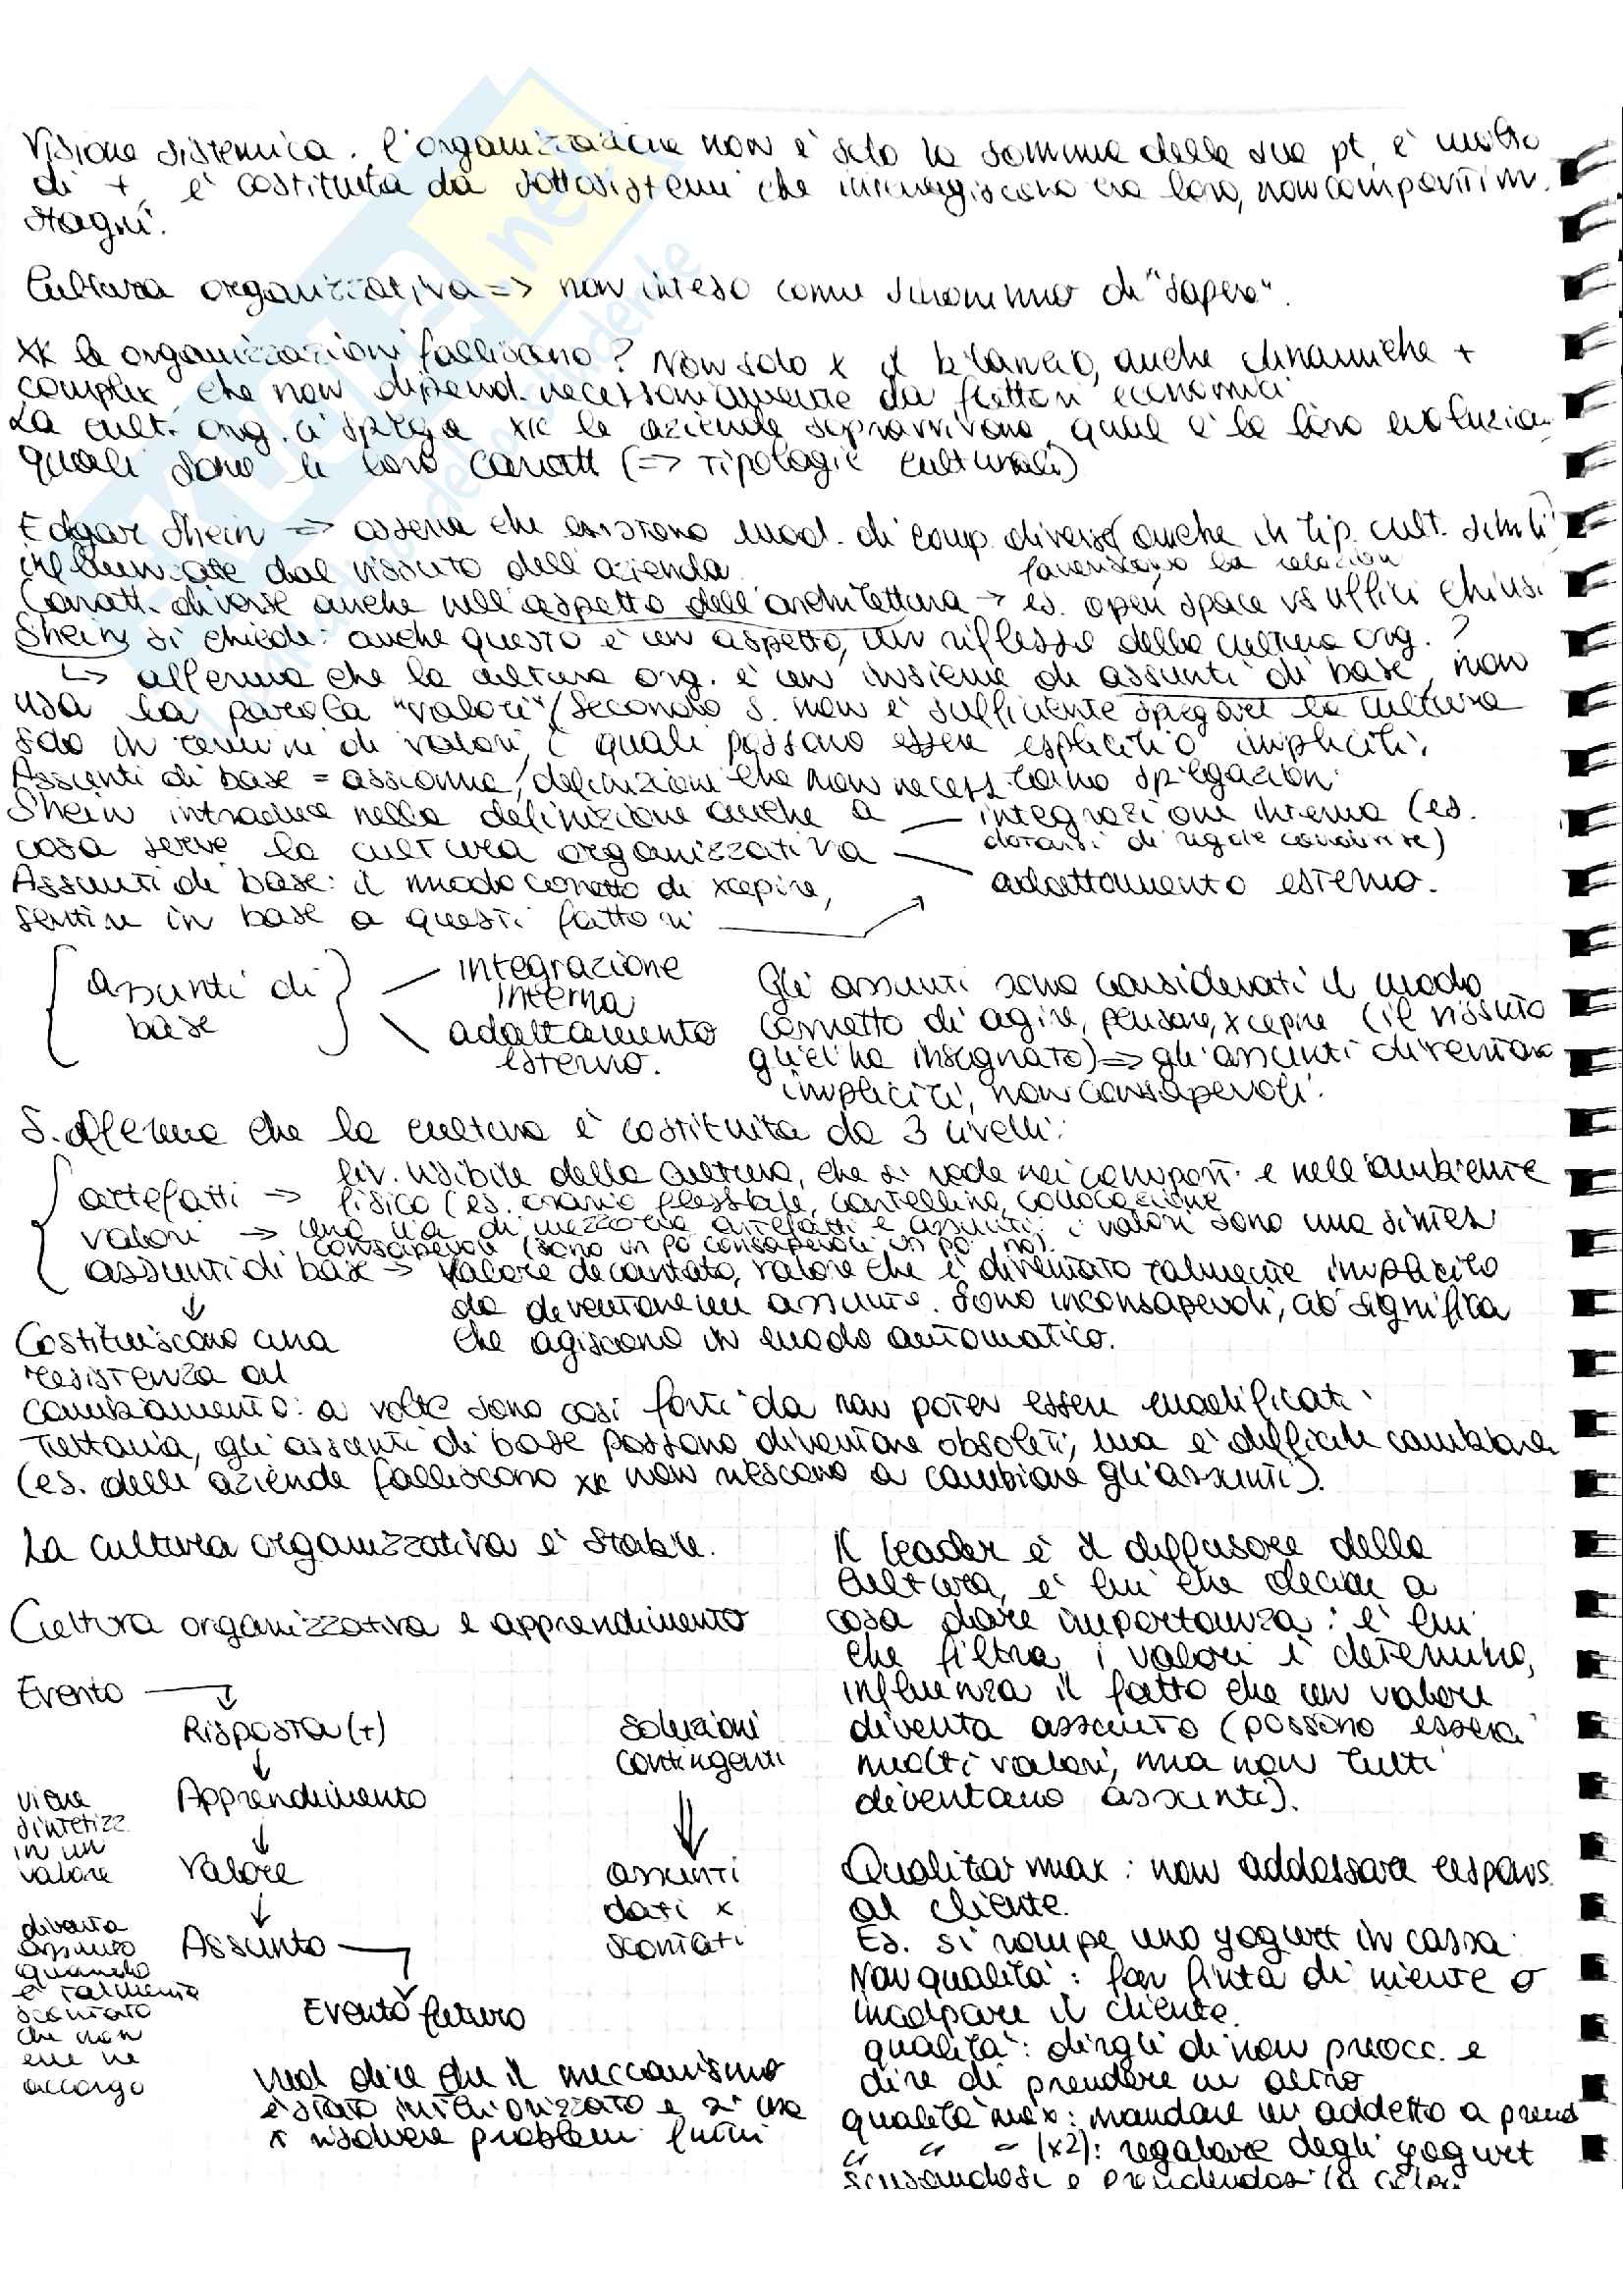 Visione sistemica. l'organizzazione non è solo la somma delle sue pt, è molto
di +, è costituita da sottosistemi che interagiscono tra loro, non compartim.
stagni.
Cultura organizzativa => non inteso come sinonimo di "sapere".
xk le organizzazioni falliscono? Non solo x il bilancio, anche dinamiche +
compless. che non dipend. necessariamente da fattori economici
La cult. org. ci spiega xk le aziende sopravvivono, qual è la loro evoluzione
quali sono le loro caratt (=> tipologie culturali)
Edgar Shein => osserva che esistono mod. di comp. diversi (anche in tip. cult. simili)
influenzate dal vissuto dell'azienda
favoriscono la relazion
Caratt. diverse anche nell'aspetto dell'architettura → es. open space vs uffici chiusi
Shein si chiede: anche questo è un aspetto, un riflesso della cultura org.?
↳ afferma che la cultura org. è un insieme di assunti di base, non
usa la parola "valori" (secondo S. non è sufficiente spiegare la cultura
solo in termini di valori, i quali possono essere espliciti o impliciti.
Assunti di base = assioma, definizioni che non necessitano spiegazioni.
Shein introduce nella definizione anche a
cosa serve la cultura organizzativa
integrazione interna (es.
dotarsi di regole condivise)
adattamento esterno.
Assunti di base: il modo corretto di xcepire,
sentire in base a questi fattori
assunti di
base
integrazione
interna
adattamento
esterno.
Gli assunti sono considerati il modo
corretto di agire, pensare, xcepire (il vissuto
gliel'ha insegnato) => gli assunti diventano
impliciti, non consapevoli.
S. afferma che la cultura è costituita da 3 livelli:
artefatti → liv. visibile della cultura, che si vede nei comport. e nell'ambiente
fisico (es. orario flessibile, cartellino, collocazione
valori → una via di mezzo tra artefatti e assunti: i valori sono una sintesi
consapevole (sono un po' consapevoli un po' no).
assunti di base → valore decantato, valore che è diventato talmente implicito
da diventare un assunto. Sono inconsapevoli, ciò significa
che agiscono in modo automatico.
↓
Costituiscono una
resistenza al
cambiamento: a volte sono così forti da non poter essere modificati.
Tuttavia, gli assunti di base possono diventare obsoleti, ma è difficile cambiare
(es. delle aziende falliscono xk non riescono a cambiare gli assunti).
La cultura organizzativa è stabile.
Cultura organizzativa e apprendimento
Evento
Risposta (+)
↓
Apprendimento
↓
Valore
↓
Assunto
Evento futuro
viene
sintetizz.
in un
valore
diventa
assunto
quando
è talmente
scontato
che non
me ne
accorgo
soluzioni
contingenti
⇓
assunti
dati x
scontati
vuol dire che il meccanismo
è stato interiorizzato e si usa
x risolvere problemi futuri
Il leader è il diffusore della
cultura, è lui che decide a
cosa dare importanza: è lui
che filtra i valori e determina,
influenza il fatto che un valore
diventa assunto (possono essere
molti valori, ma non tutti
diventano assunti).
Qualità max: non addossare respons.
al cliente.
Es. si rompe uno yogurt in cassa
Non qualità: far finta di niente o
incolpare il cliente.
qualità: dirgli di non preocc. e
dire di prendere un altro
qualità max: mandare un addetto a prend
" " " (x2): regalare degli yogurt
scusandosi e prendendosi la colpa